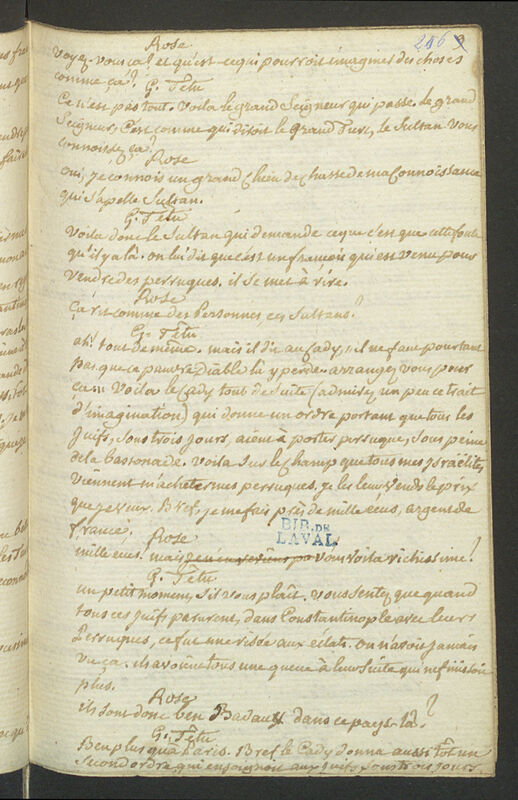 246 9
Rose
Voyez-vous ça! et qu'est-ce qui pourroit imaginer des choses
comme ça?
G. Têtu
Ce n'est pas tout. Voila le grand Seigneur qui passe. le grand
Seigneur, c'est comme qui diroit le grand Turc, le Sultan. Vous
connoissez ça?
Rose
oui, je connois un grand chien de chasse de ma connoissance
qui s'apelle Sultan.
G. Têtu
Voila donc le Sultan qui demande ce que c'est que cette foule
qu'il y a là. on lui dit que c'est un françois qui est venu pour
vendre des perruques. il se met à rire.
Rose
Ça rit comme des Personnes, ces Sultans?
G. Têtu
ah! tout de même. mais il dit au Cady, il ne faut pourtant
pas que ce pauvre Diable là y perde. arrangez vous pour
ça. Voila le Cady tout de Suite (admirez un peu ce trait
d'imagination) qui donne un ordre portant que tous les
Juifs, Sous trois jours, aient à porter perruque, Sous peine
de la bastonade. Voila Sur le champ que tous mes Israëlites
viennent m'acheter mes perruques. je les leur vends le prix
que je veux. Bref, je me fais près de mille ecus, argent de
france.
BIB. DE
LAVAL
Rose
mille ecus! mais vous voila richissime!
G. Têtu
un petit moment, s'il vous plaît. vous sentez que quand
tous ces Juifs parurent, dans Constantinople avec leurs
Perruques, ce fut une risée aux eclats. on n'avoit jamais
vu ça. ils avoient tous une queue à leur Suite qui ne finissoit
plus.
Rose
ils sont donc ben Badauts dans ce pays là?
G. Têtu
Ben plus qu'à Paris. Bref le Cady donna aussi tôt un
Second ordre, qui enjoignoit aux Juifs, Sous trois jours